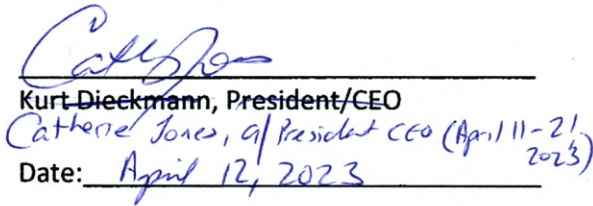 Cathy Jones
Kurt Dieckmann, President/CEO
Catherine Jones, a/ President CEO (April 11-21, 2023)
Date: April 12, 2023